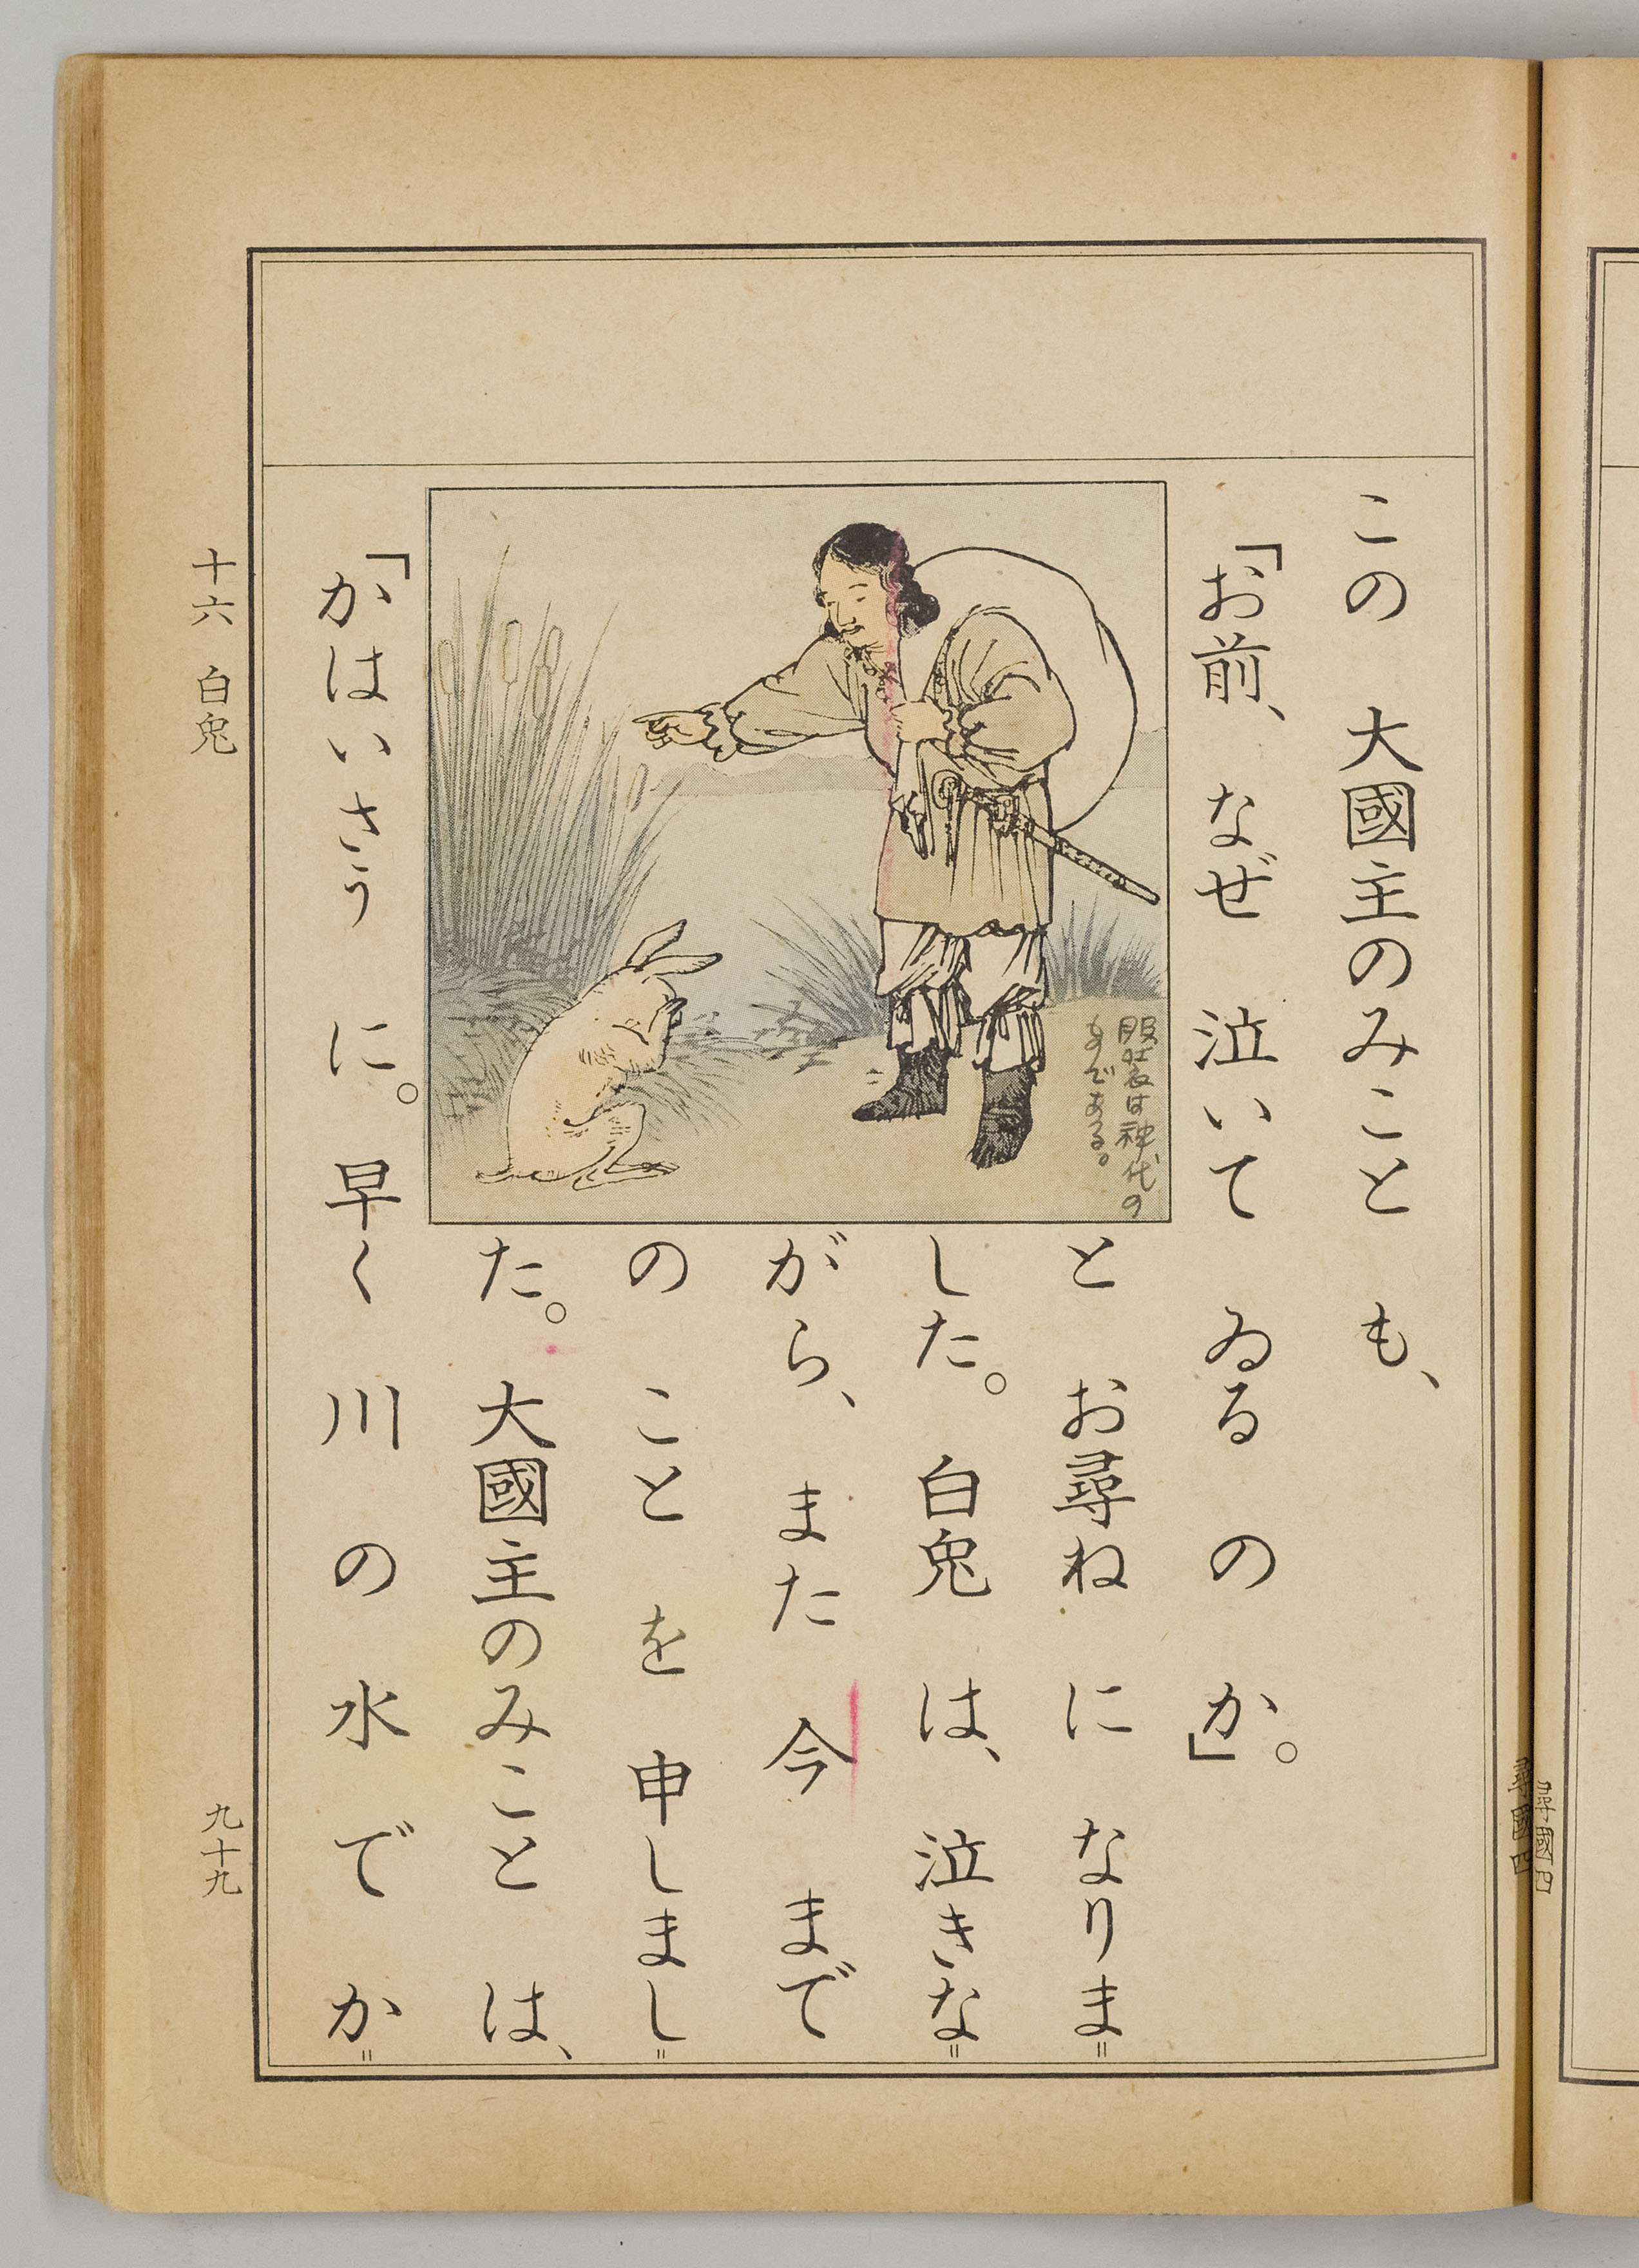 この 大國主のみこと も、
「お前、 なぜ 泣いて ゐる の か。」
と お尋ね に なりま=
した。 白兎 は、 泣きな=
がら、 また 今 まで
の こと を 申しまし=
た。 大國主のみこと は、
「かはいさう に。 早く 川 の 水 で か=
服装は神代の
ものである。
十六 白兎
九十九
尋國四
尋國四